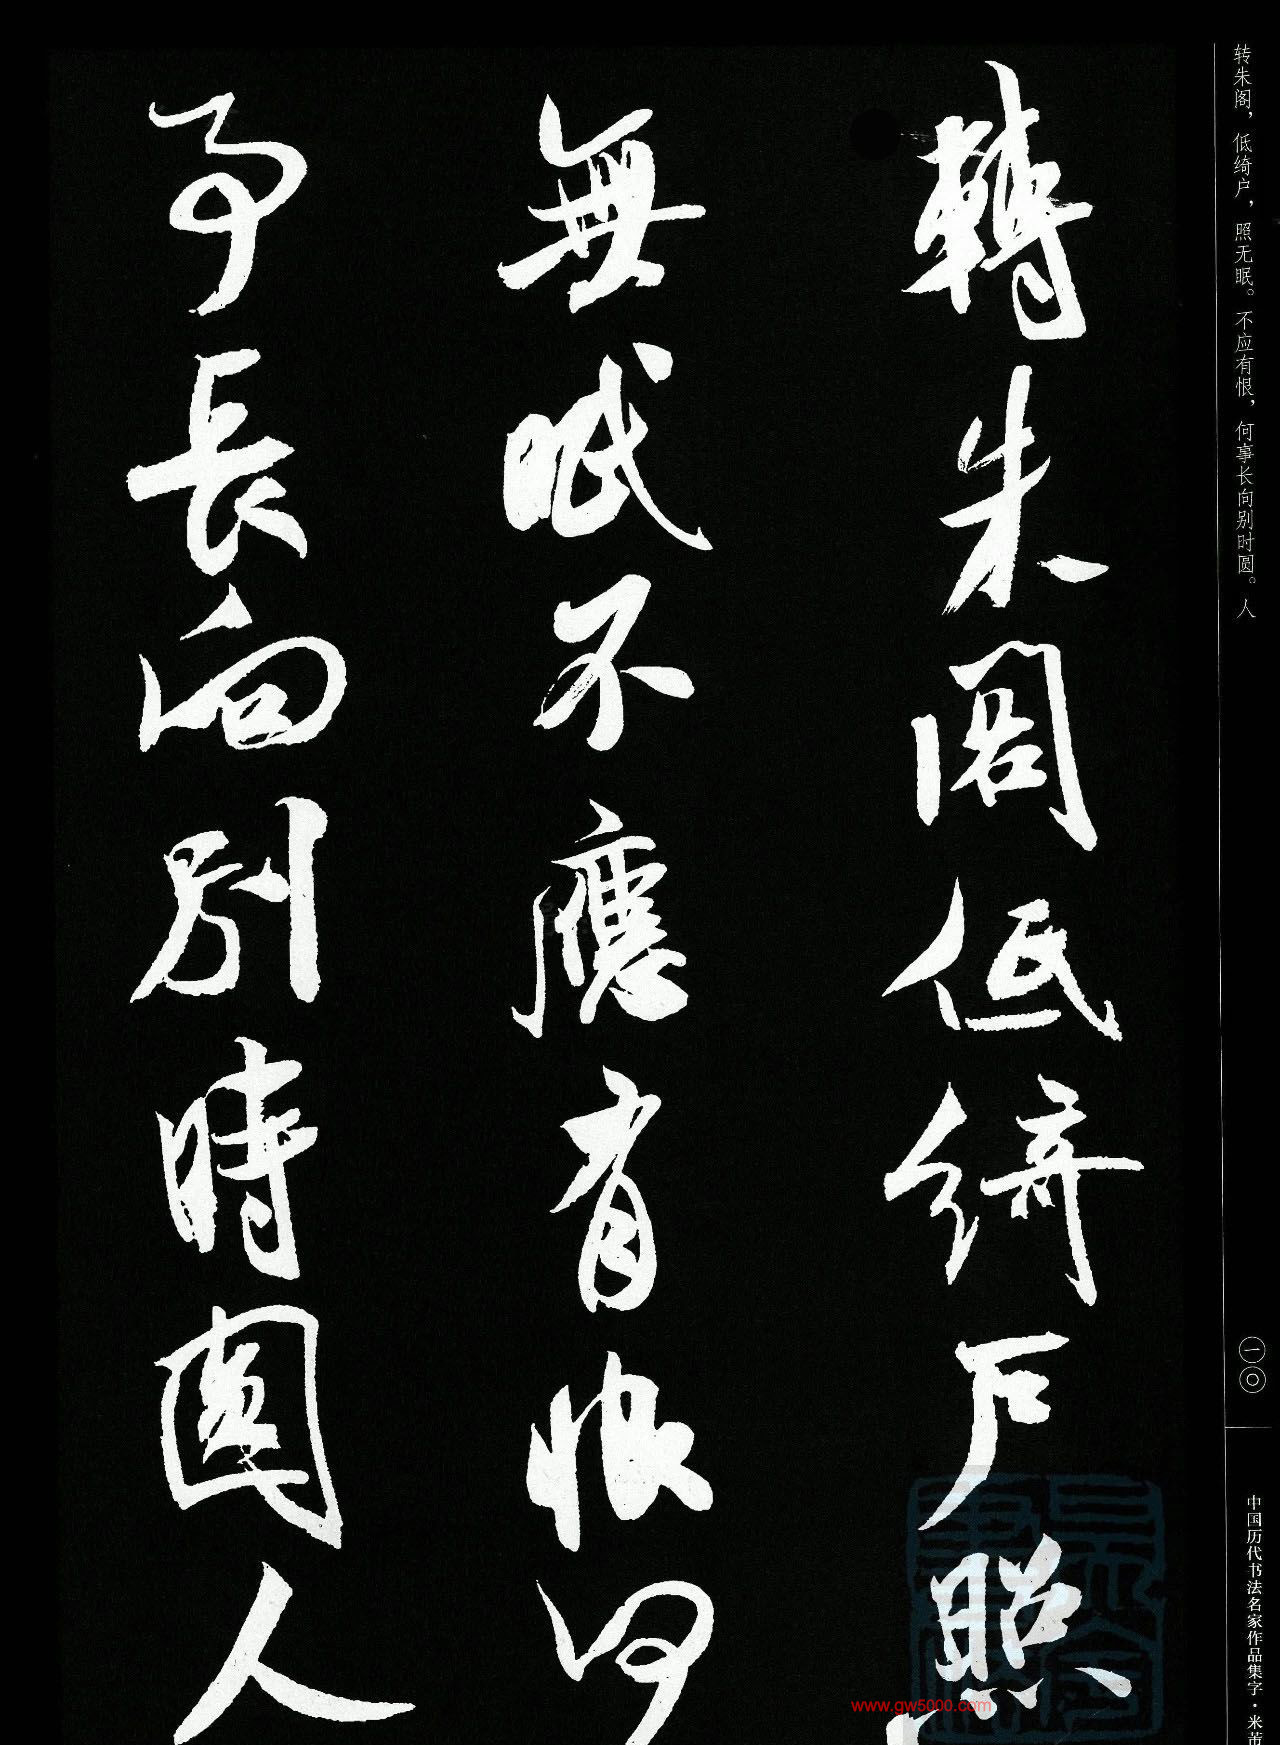 转朱阁，低绮户，照无眠。不应有恨，何事长向别时圆。人
轉朱阁低绮户照
無眠不應有恨何
事長向别時圓人
一〇
中国历代书法名家作品集字·米芾
www.gw5000.com